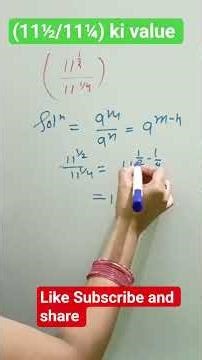 (11½/11¼) ki value
(11^½ / 11^1/4)
Solⁿ = a^m/a^n = a^m-n
11^1/2 / 11^1/4 = 11^1/2 - 1/4
= 1
Like Subscribe and
share